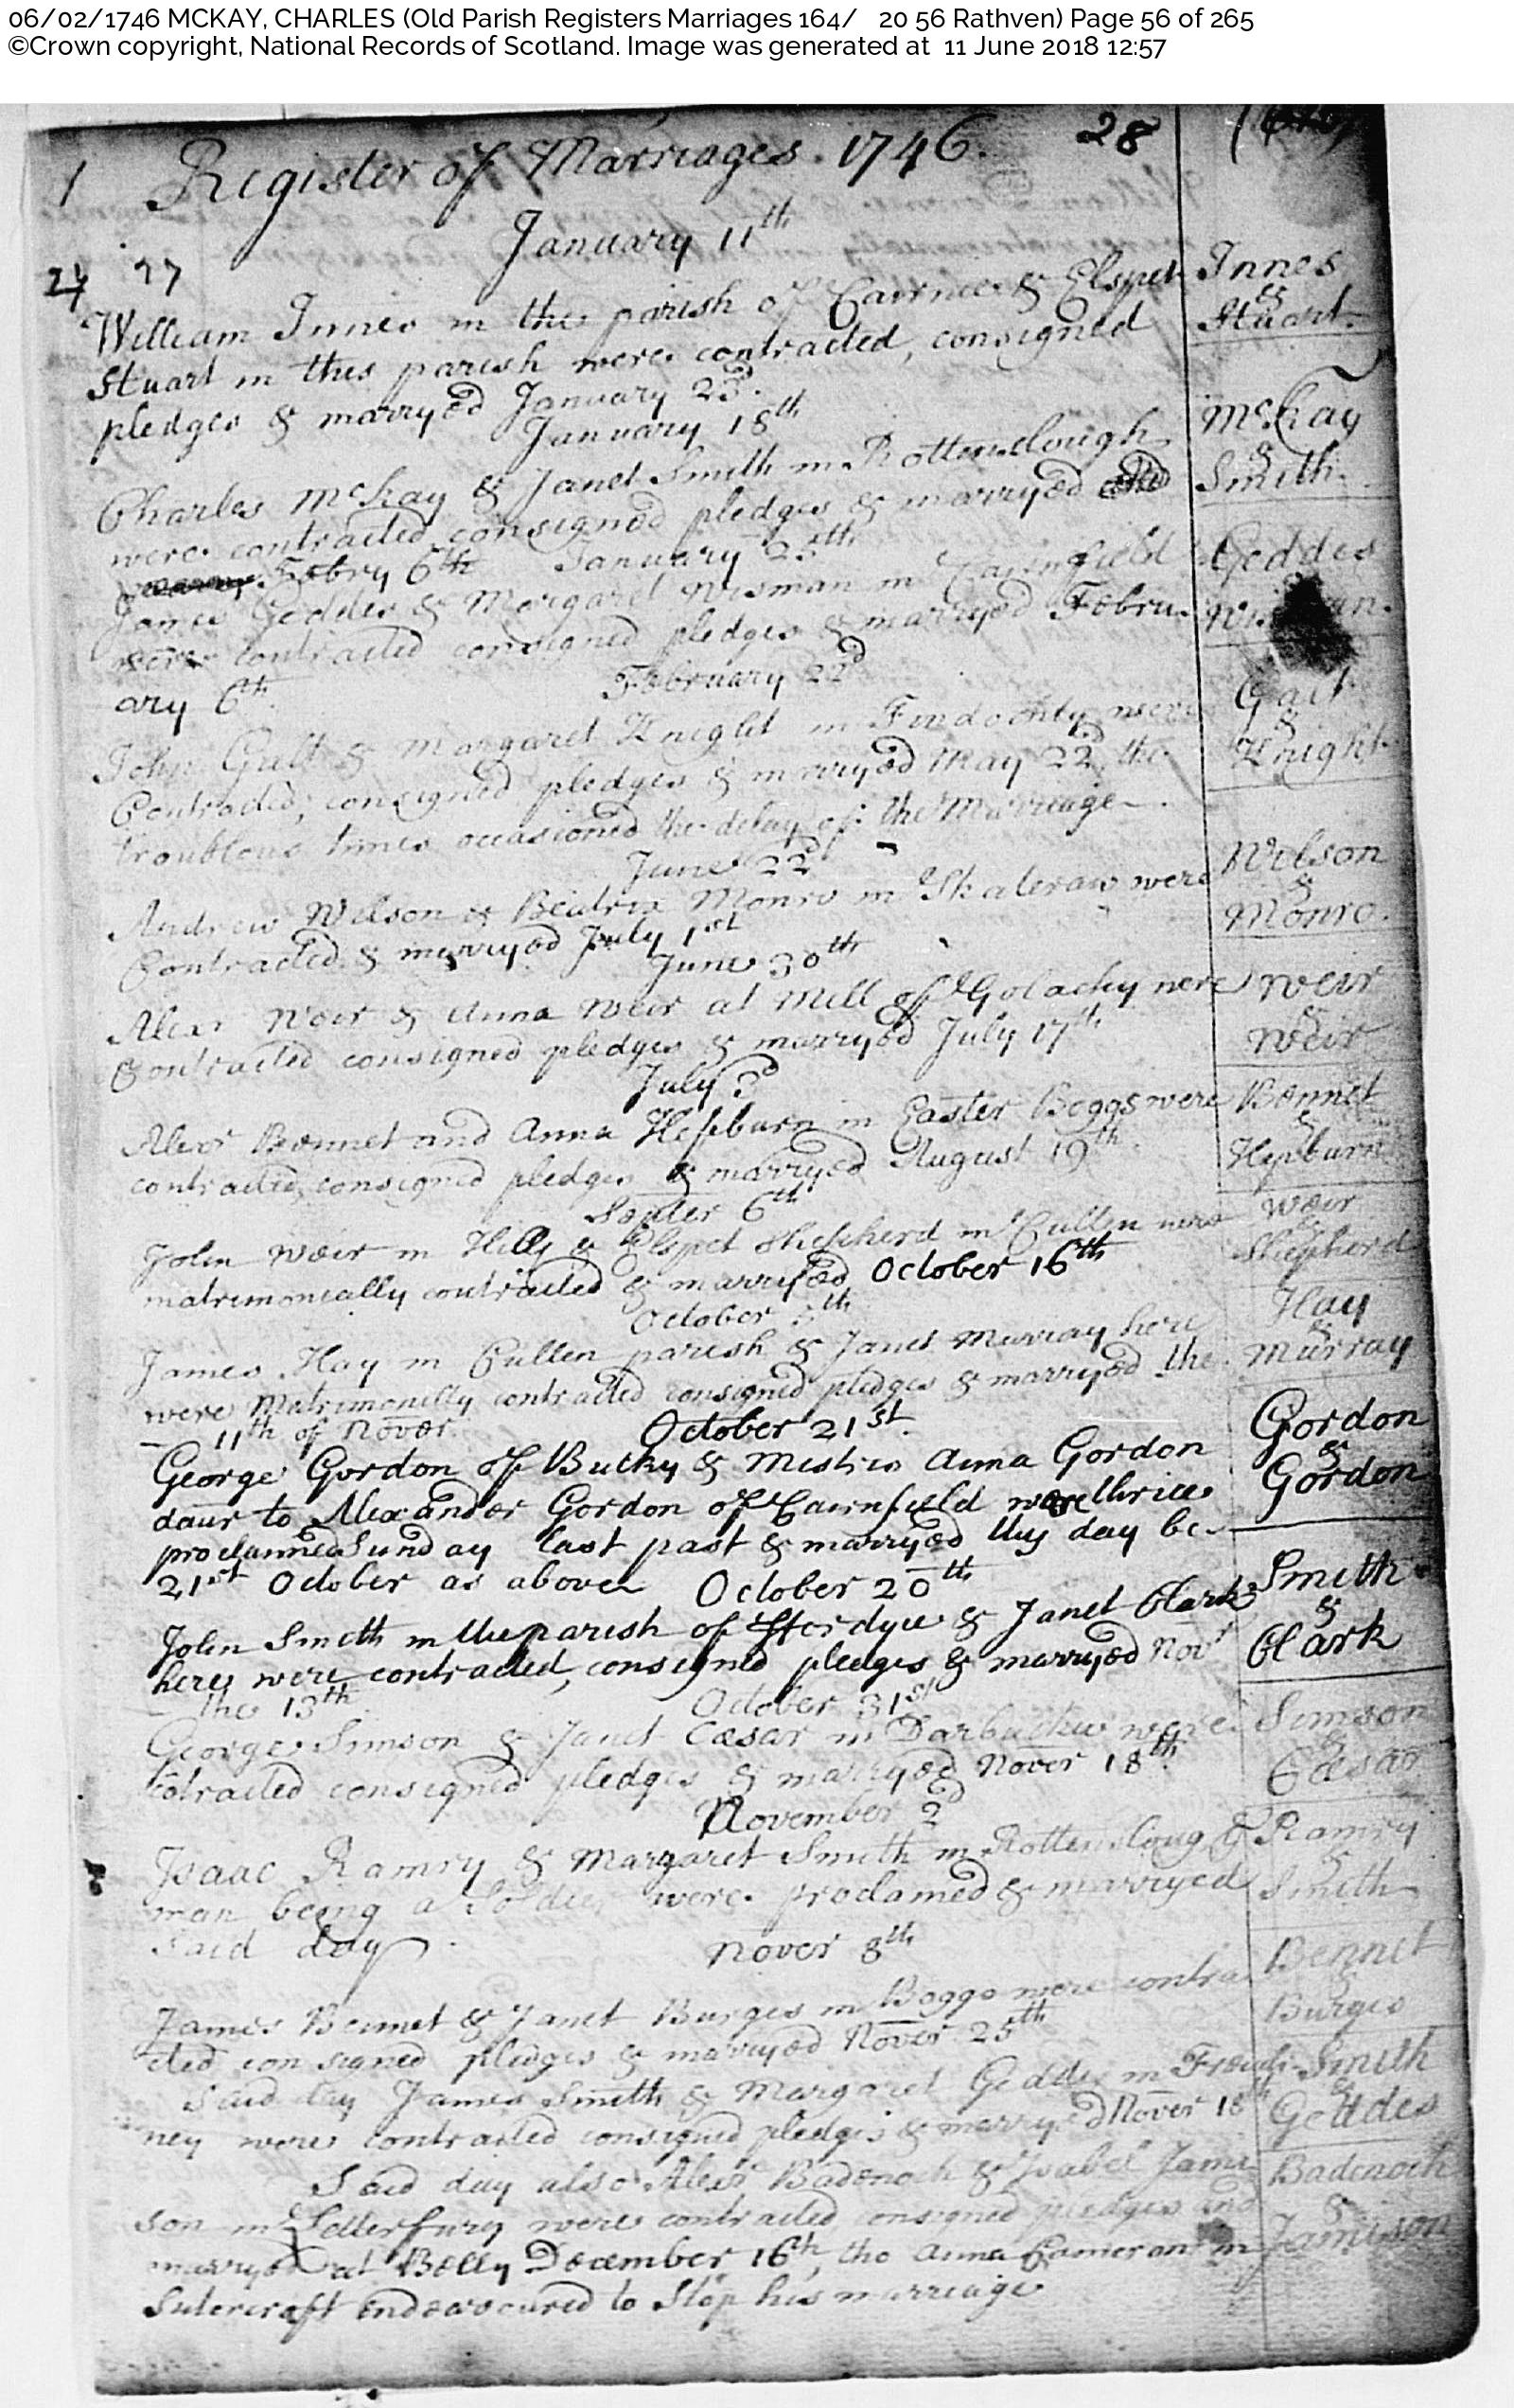 06/02/1746 MCKAY, CHARLES (Old Parish Registers Marriages 164/ 20 56 Rathven) Page 56 of 265
©Crown copyright, National Records of Scotland. Image was generated at 11 June 2018 12:57
1 Register of Marriages. 1746. 28
January 11th
27
William Innes in the parish of Cairnie & Elspet Innes
&
Stuart in this parish were contracted, consigned Stuart.
pledges & marryed January 23d.
January 18th
Charles McKay & Janet Smith in Rottenslough McKay
&
were contracted consigned pledges & marryed Smith.
Febry 6th January 25th
James Geddes & Margaret Wisman in Cairnfield Geddes
were contracted consigned pledges & marryed Febru-
ary 6th.
February 22d
John Gult & Margaret Knight in Findochty were
&
Contracted, consigned pledges & marryed May 22d, the Knight
troublous times occasioned the delay of the Marriage.
June 22d
Andrew Wilson & Beatrix Monro in Skateraw were Wilson
&
Contracted & marryed July 1st Monro.
June 30th
Alexr Weir & Anna Weir at Mill of Golachy were Weir
&
Contracted consigned pledges & marryed July 17th Weir
July 3d
Alexr Bennet and Anna Hepburn in Easter Boggs were Bennet
&
contracted, consigned pledges & marryed August 19th. Hepburn
Septer 6th
John Weir in Hilly & Elspet Shepherd in Cullen were Weir
&
matrimonially contracted & marryed October 16th Shepherd
October th
James Hay in Cullen parish & Janet Murray here Hay
&
were Matrimonially contracted consigned pledges & marryed the Murray
11th of Nover. October 21st.
George Gordon of Bucky & Mistris Anna Gordon Gordon
&
daur to Alexander Gordon of Cairnfield were thrice Gordon
proclaimed Sunday last past & marryed this day be-
21st October as above October 20th
John Smith in the parish of Fordyce & Janet Clark Smith
&
here were contracted, consigned pledges & marryed Novr Clark
the 13th. October 31st
George Simson & Janet Cæsar in Darbuckie were Simson
&
cotracted consigned pledges & marryed Nover 18th. Cæsar
November 2d
Isaac Ramsy & Margaret Smith in Rottensloug Ramsy
&
man being a Soldier were proclamed & marryed Smith
said day.
Nover 8th
James Bennet & Janet Burges in Boggs were contra Bennet
&
cted consigned pledges & marryed Nover 25th Burges
Said day James Smith & Margaret Geddes in Freuch- Smith
&
ney were contracted consigned pledges & marryed Nover 18th Geddes
Said day also Alexr Badenoch & Isabel Jami Badenoch
&
son in Letterfury were contracted consigned pledges and Jamison
marryed at Belly December 16th, tho Anna Cameron in
Sutercroft Endeavoured to Stop his marriage